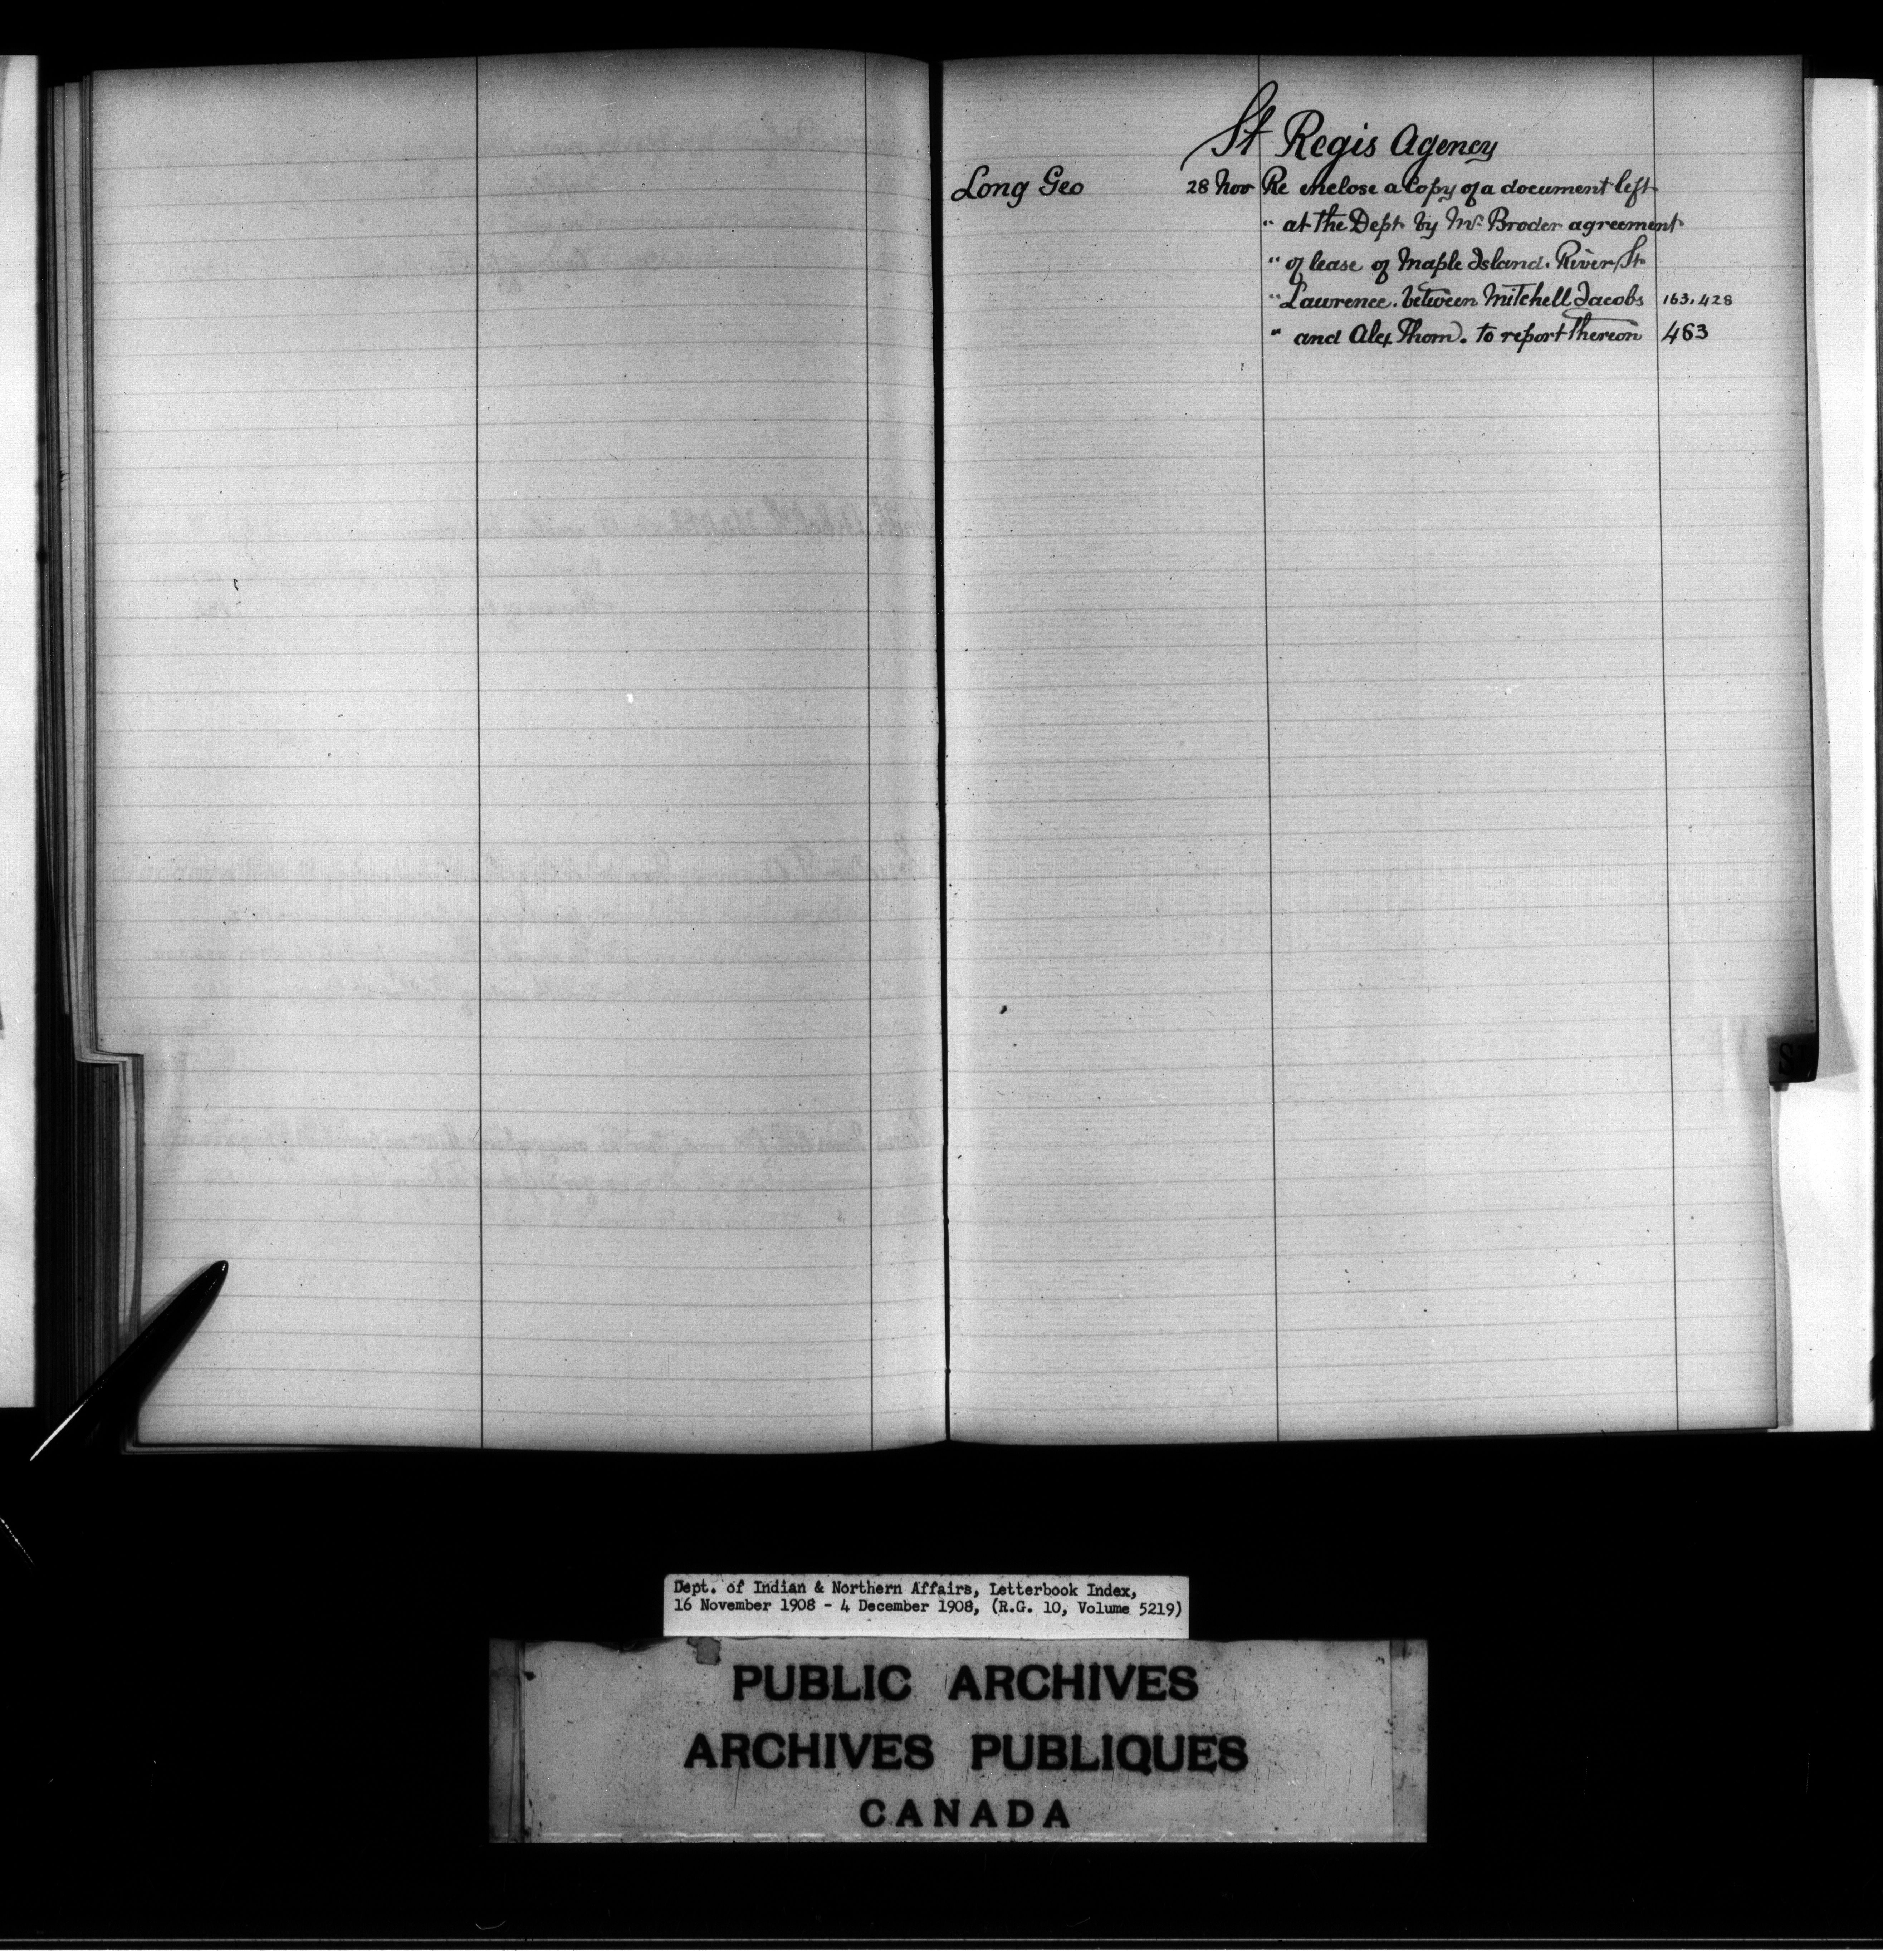 St Regis Agency
Long Geo 28 Nov Re enclose a Copy of a document left
" at the Dept by Mr Broder agreement
" of lease of Maple Island. River St
" Lawrence. between Mitchell Jacobs 163.428
" and Alex Thom. to report thereon 463
Dept. of Indian & Northern Affairs, Letterbook Index,
16 November 1908 - 4 December 1908, (R.G. 10, Volume 5219)
PUBLIC ARCHIVES
ARCHIVES PUBLIQUES
CANADA